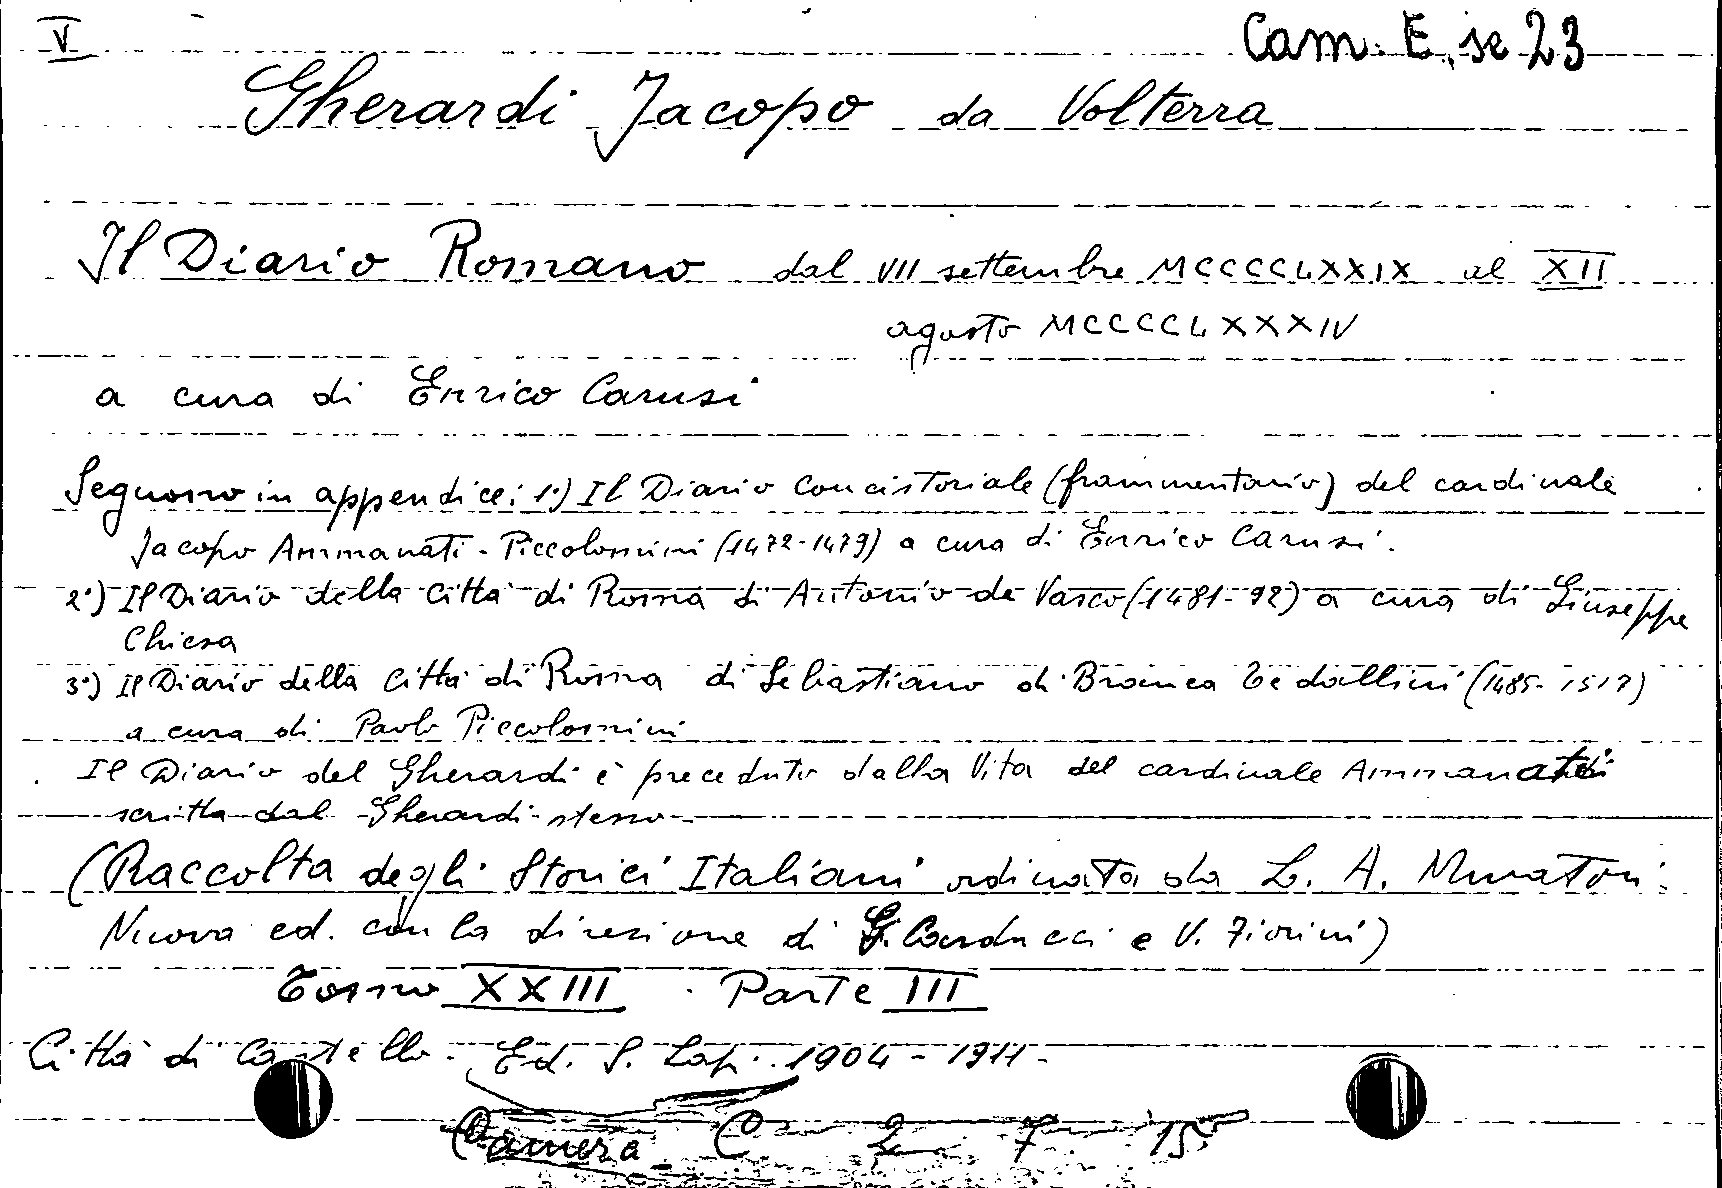 V
Cam. E. se 23
Gherardi Jacopo da Volterra
Il Diario Romano dal VII settembre MCCCCLXXIX al XII
agosto MCCCCLXXXIV
a cura di Enrico Carusi
Seguono in appendice: 1°) Il Diario Concistoriale (frammentario) del cardinale
Jacopo Ammanati-Piccolomini (1472-1479) a cura di Enrico Carusi.
2°) Il Diario della Città di Roma di Antonio de Vasco (1481-92) a cura di Giuseppe
Chiesa
3°) Il Diario della Città di Roma di Sebastiano di Branca Tedallini (1485-1517)
a cura di Paolo Piccolomini
Il Diario del Gherardi è preceduto dalla Vita del cardinale Ammanati
scritta dal Gherardi stesso
(Raccolta degli Storici Italiani ordinata da L. A. Muratori
Nuova ed. con la direzione di G. Carducci e V. Fiorini)
Tomo XXIII. Parte III
Città di Castello. Ed. S. Lapi. 1904-1911-
Camera C 2 7 15